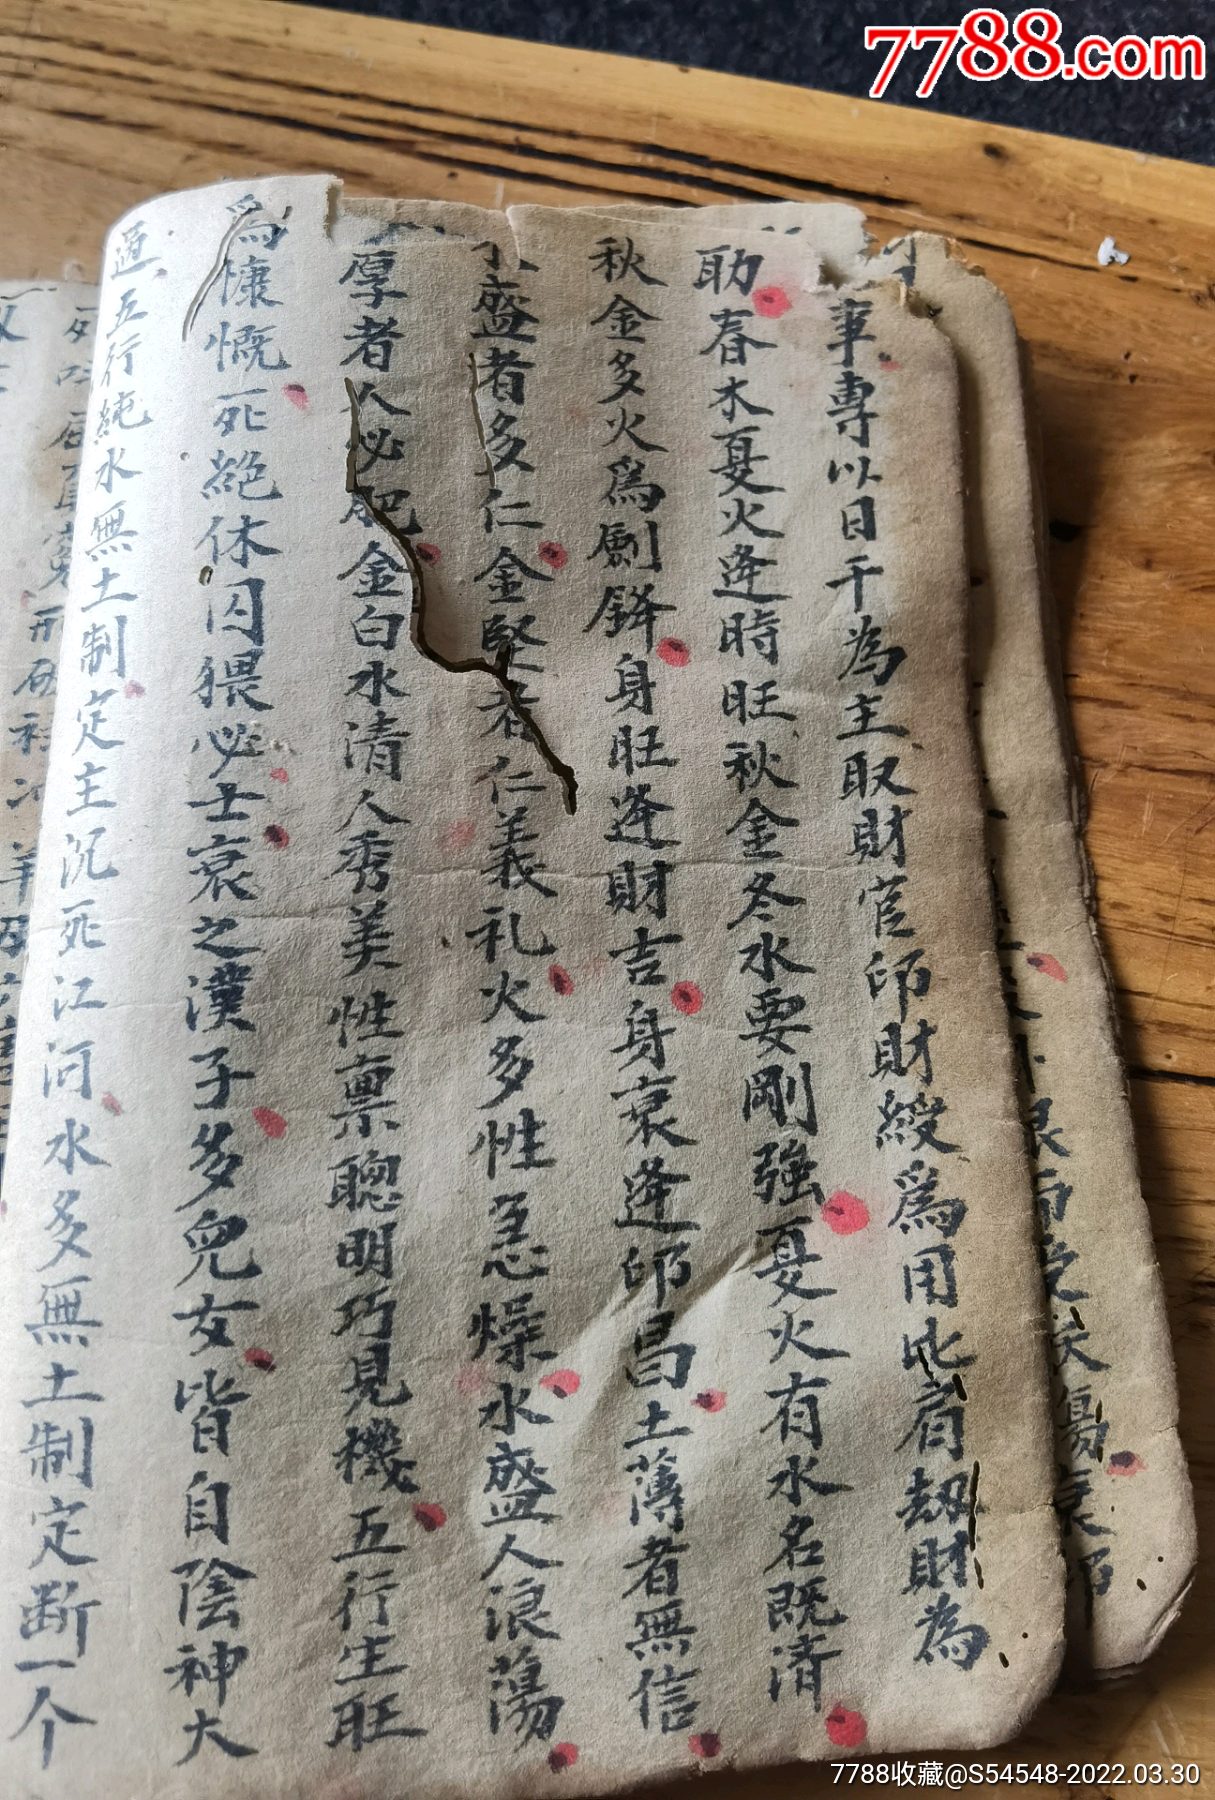 7788.com
事專以日干為主取財官印財綬爲用比肩劫財為
助春木夏火逢時旺秋金冬水要剛強夏火有水名既濟
秋金多火爲劍鋒身旺逢財吉身衰逢印昌土薄者無信
盛者多仁金堅者仁義礼火多性急燥水盛人浪蕩
厚者人必肥金白水清人秀美性禀聰明巧見機五行生旺
爲慷慨死絕休囚猥必士衰之漢子多兒女皆自陰神大
通五行純水無土制定主沉死江河水多無土制定斷一个
7788收藏@S54548-2022.03.30